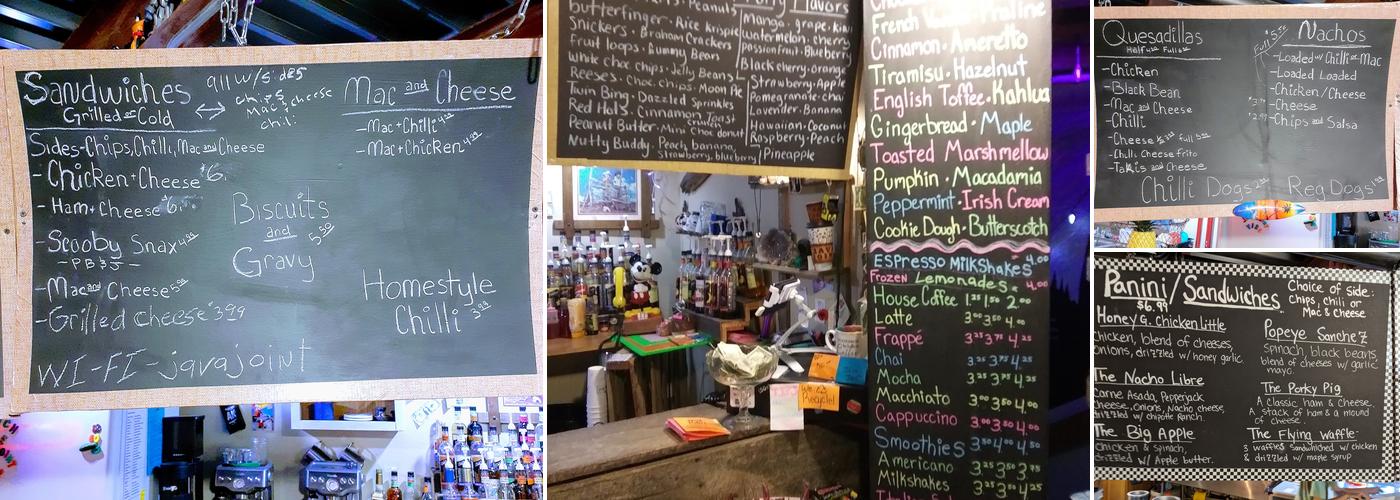 Sandwiches
Grilled or Cold
Sides-Chips, Chilli, Mac and Cheese
-Chicken + Cheese $6.
-Ham + Cheese $6.
-Scooby Snax 4.99
-PB & J-
-Mac and Cheese 5.99
-Grilled cheese $3.99
WI-FI-javajoint
chips
Mac & cheese
chili
Biscuits
and
Gravy
5.50
Mac and Cheese
-Mac + Chilli 4.99
-Mac + Chicken 4.99
Homestyle
Chilli 3.99
Butterfinger · Rice Krispie
Snickers · Graham Crackers
Fruit loops · Gummy Bears
White choc chips · Jelly Beans
Reeses · Choc. chips · Moon Pie
Twin Bing · Dazzled Sprinkles
Red Hots · Cinnamon Toast
crunch
Peanut Butter · Mini Choc donut
Nutty Buddy · Peach, banana,
Strawberry, blueberry
Flavors
Mango · grape · kiwi
Watermelon · cherry
passionfruit · Blueberry
Black cherry · orange
Strawberry · Apple
Pomegranate · chai
Lavender · Banana
Hawaiian · Coconut
Raspberry · Peach
Pineapple
We Recycle!
Cinnamon · Amaretto
Tiramisu · Hazelnut
English Toffee · Kahlua
Gingerbread · Maple
Toasted Marshmellow
Pumpkin · Macadamia
Peppermint · Irish Cream
Cookie Dough · Butterscotch
Espresso Milkshakes 4.00
Frozen Lemonades 4.00
House Coffee 1.25 1.50 2.00
Latte 3.00 3.50 4.00
Frappé 3.25 3.75 4.25
Chai 3.25 3.75 4.25
Mocha 3.25 3.75 4.25
Macchiato 3.00 3.50 4.00
Cappuccino 3.00 3.50 4.00
Smoothies 3.50 4.00 4.50
Americano 3.25 3.50 3.75
Milkshakes 3.25 3.75 4.25
Quesadillas
-Chicken
-Black Bean
-Mac and Cheese
-Chilli
-Cheese
-Chilli Cheese frito
-Takis and Cheese
Nachos
-Loaded w/ Chilli or Mac
-Loaded Loaded
-Chicken/Cheese
-Cheese
-Chips and Salsa
Chilli Dogs
Reg Dogs
Panini/Sandwiches
$6.99
Choice of side:
chips, chili or
Mac & Cheese
Honey G. Chicken Little
Chicken, blend of cheeses,
onions, drizzled w/ honey garlic
The Nacho Libre
Carne Asada, Pepperjack
Cheese, Onions, Nacho cheese,
drizzled w/ chipotle Ranch.
The Big Apple
Chicken & Spinach,
drizzled w/ Apple butter.
Popeye Sanchez
Spinach, black beans,
blend of cheeses w/ garlic
mayo.
The Porky Pig
A classic ham & Cheese.
A stack of ham & a mound
of cheese.
The Flying Waffle
3 waffles sandwiched w/ chicken
& drizzled w/ maple syrup